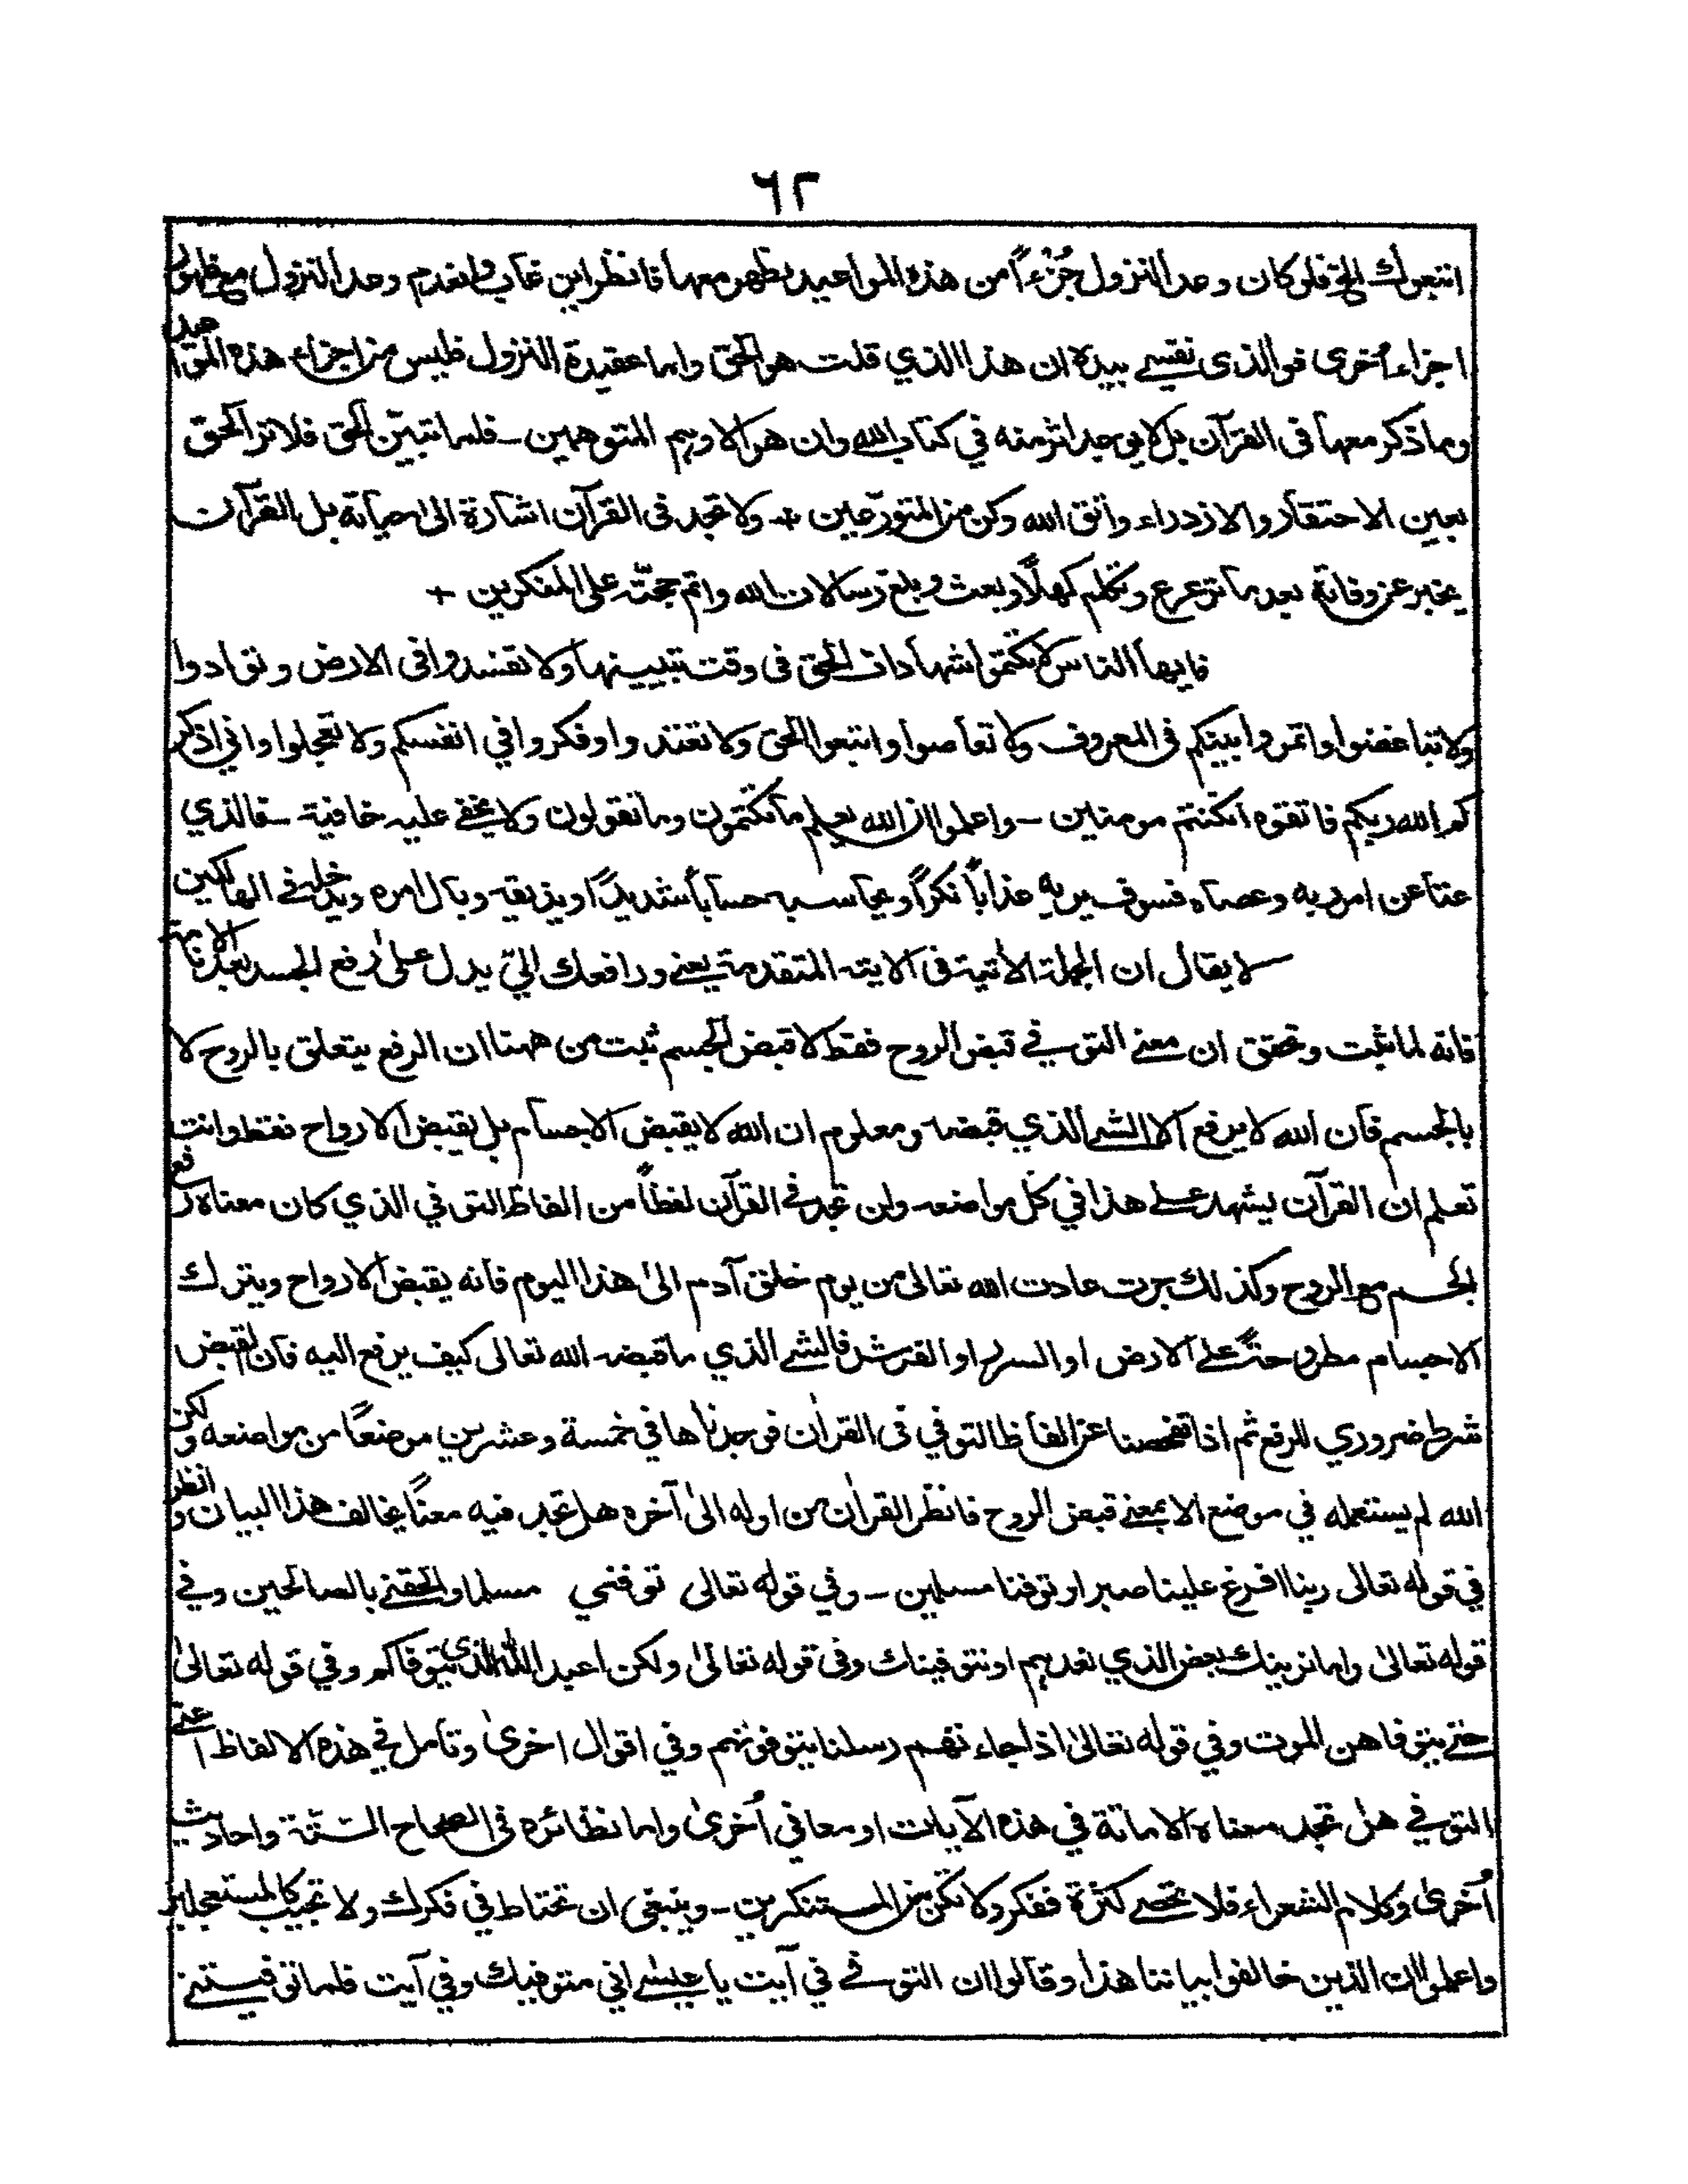 ٦٢
اتبعوك الخ فلو كان وعد النزول جُزْءاً من هذه المواعيد لظهر معها فانظر اين غاب وانعدم وعد النزول مع ظهور
اجزاء اُخرى فوالذى نفسي بيده ان هذا الذي قلت هو الحق واما عقيدة النزول فليس من اجزاء هذه المواعيد
وما ذكر معها فى القرآن بل لا يوجد اثر منه في كتاب الله وان هو الا وهم المتوهمين - فلما تبيّن الحق فلا تر الحق
بعين الاحتقار والازدراء واتق الله وكن من المتورّعين + ولا تجد فى القرآن اشارة الى حياته بل القرآن
يخبر عن وفاته بعد ما ترعرع وتكلم كهلًا وبعث وبلغ رسالات الله واتم حجّته على المنكرين +
فايها الناس لا تكتموا شهادات الحق فى وقت تبيينها ولا تفسدوا فى الارض وتوادوا
ولا تباغضوا واتمروا بينكم فى المعروف ولا تعاصوا واتبعوا الحق ولا تعتدوا وفكروا في انفسكم ولا تعجلوا واني اذكر
كم الله ربكم فاتقوه ان كنتم مومنين - واعلموا ان الله يعلم ما تكتمون وما تقولون ولا يخفى عليه خافية - فالذي
عتا عن امر ربه وعصاه فسوف يريه عذاباً نكراً ويحاسبه حساباً شديدًا ويذيقه وبال امره ويدخله فى الهالكين
لا يقال ان الجملة الاٰتية فى الاية المتقدمة يعنى ورافعك الىّ يدل على رفع الجسد بعد الاماتة
فانه لما ثبت وتحقق ان معنى التوفي قبض الروح فقط لا قبض الجسم ثبت من ههنا ان الرفع يتعلق بالروح لا
بالجسم فان الله لا يرفع الا الشئ الذي قبضه ومعلوم ان الله لا يقبض الاجسام بل يقبض الارواح فقط وانت
تعلم ان القرآن يشهد على هذا في كل مواضعه ولن تجد فى القرآن لفظاً من الفاظ التوفي الذي كان معناه رفع
الجسم مع الروح وكذلك جرت عادت الله تعالى من يوم خلق آدم الى هذا اليوم فانه يقبض الارواح ويترك
الاجسام مطروحةً على الارض او السرير او الفرش فالشئ الذي ما قبضه الله تعالى كيف يرفع اليه فان القبض
شرط ضروري للرفع ثم اذا تفحصنا عن الفاظ التوفي فى القراٰن فوجدناها في خمسة وعشرين موضعًا من مواضعه ولكن
الله لم يستعمله في موضع الا بمعنى قبض الروح فانظر القراٰن من اوله الى آخره هل تجد فيه معنًا يخالف هذا البيان وانظر
في قوله تعالى ربنا افرغ علينا صبرا وتوفنا مسلمين - وفي قوله تعالى توفني مسلما والحقنى بالصالحين وفي
قوله تعالىٰ واما نرينك بعض الذي نعدهم او نتوفينك وفى قوله تعالىٰ ولكن اعبد الله الذى يتوفاكم وفي قوله تعالىٰ
حتى يتوفاهن الموت وفي قوله تعالىٰ اذا جاءتهم رسلنا يتوفونهم وفي اقوال اخرىٰ وتامل فى هذه الالفاظ اعنى
التوفي هل تجد معناه الاماتة في هذه الآيات او معاني اُخرىٰ واما نظائره فى الصحاح الستّة واحاديث
اُخرىٰ وكلام الشعراء فلا تحصى كثرة ففكر ولا تكن من المستنكرين - وينبغى ان تحتاط في فكرك ولا تجيب كالمستعجلين
واعلموا ان الذين خالفوا بياننا هذا وقالوا ان التوفى في آيت يا عيسى اني متوفيك وفي آيت فلما توفيتنى